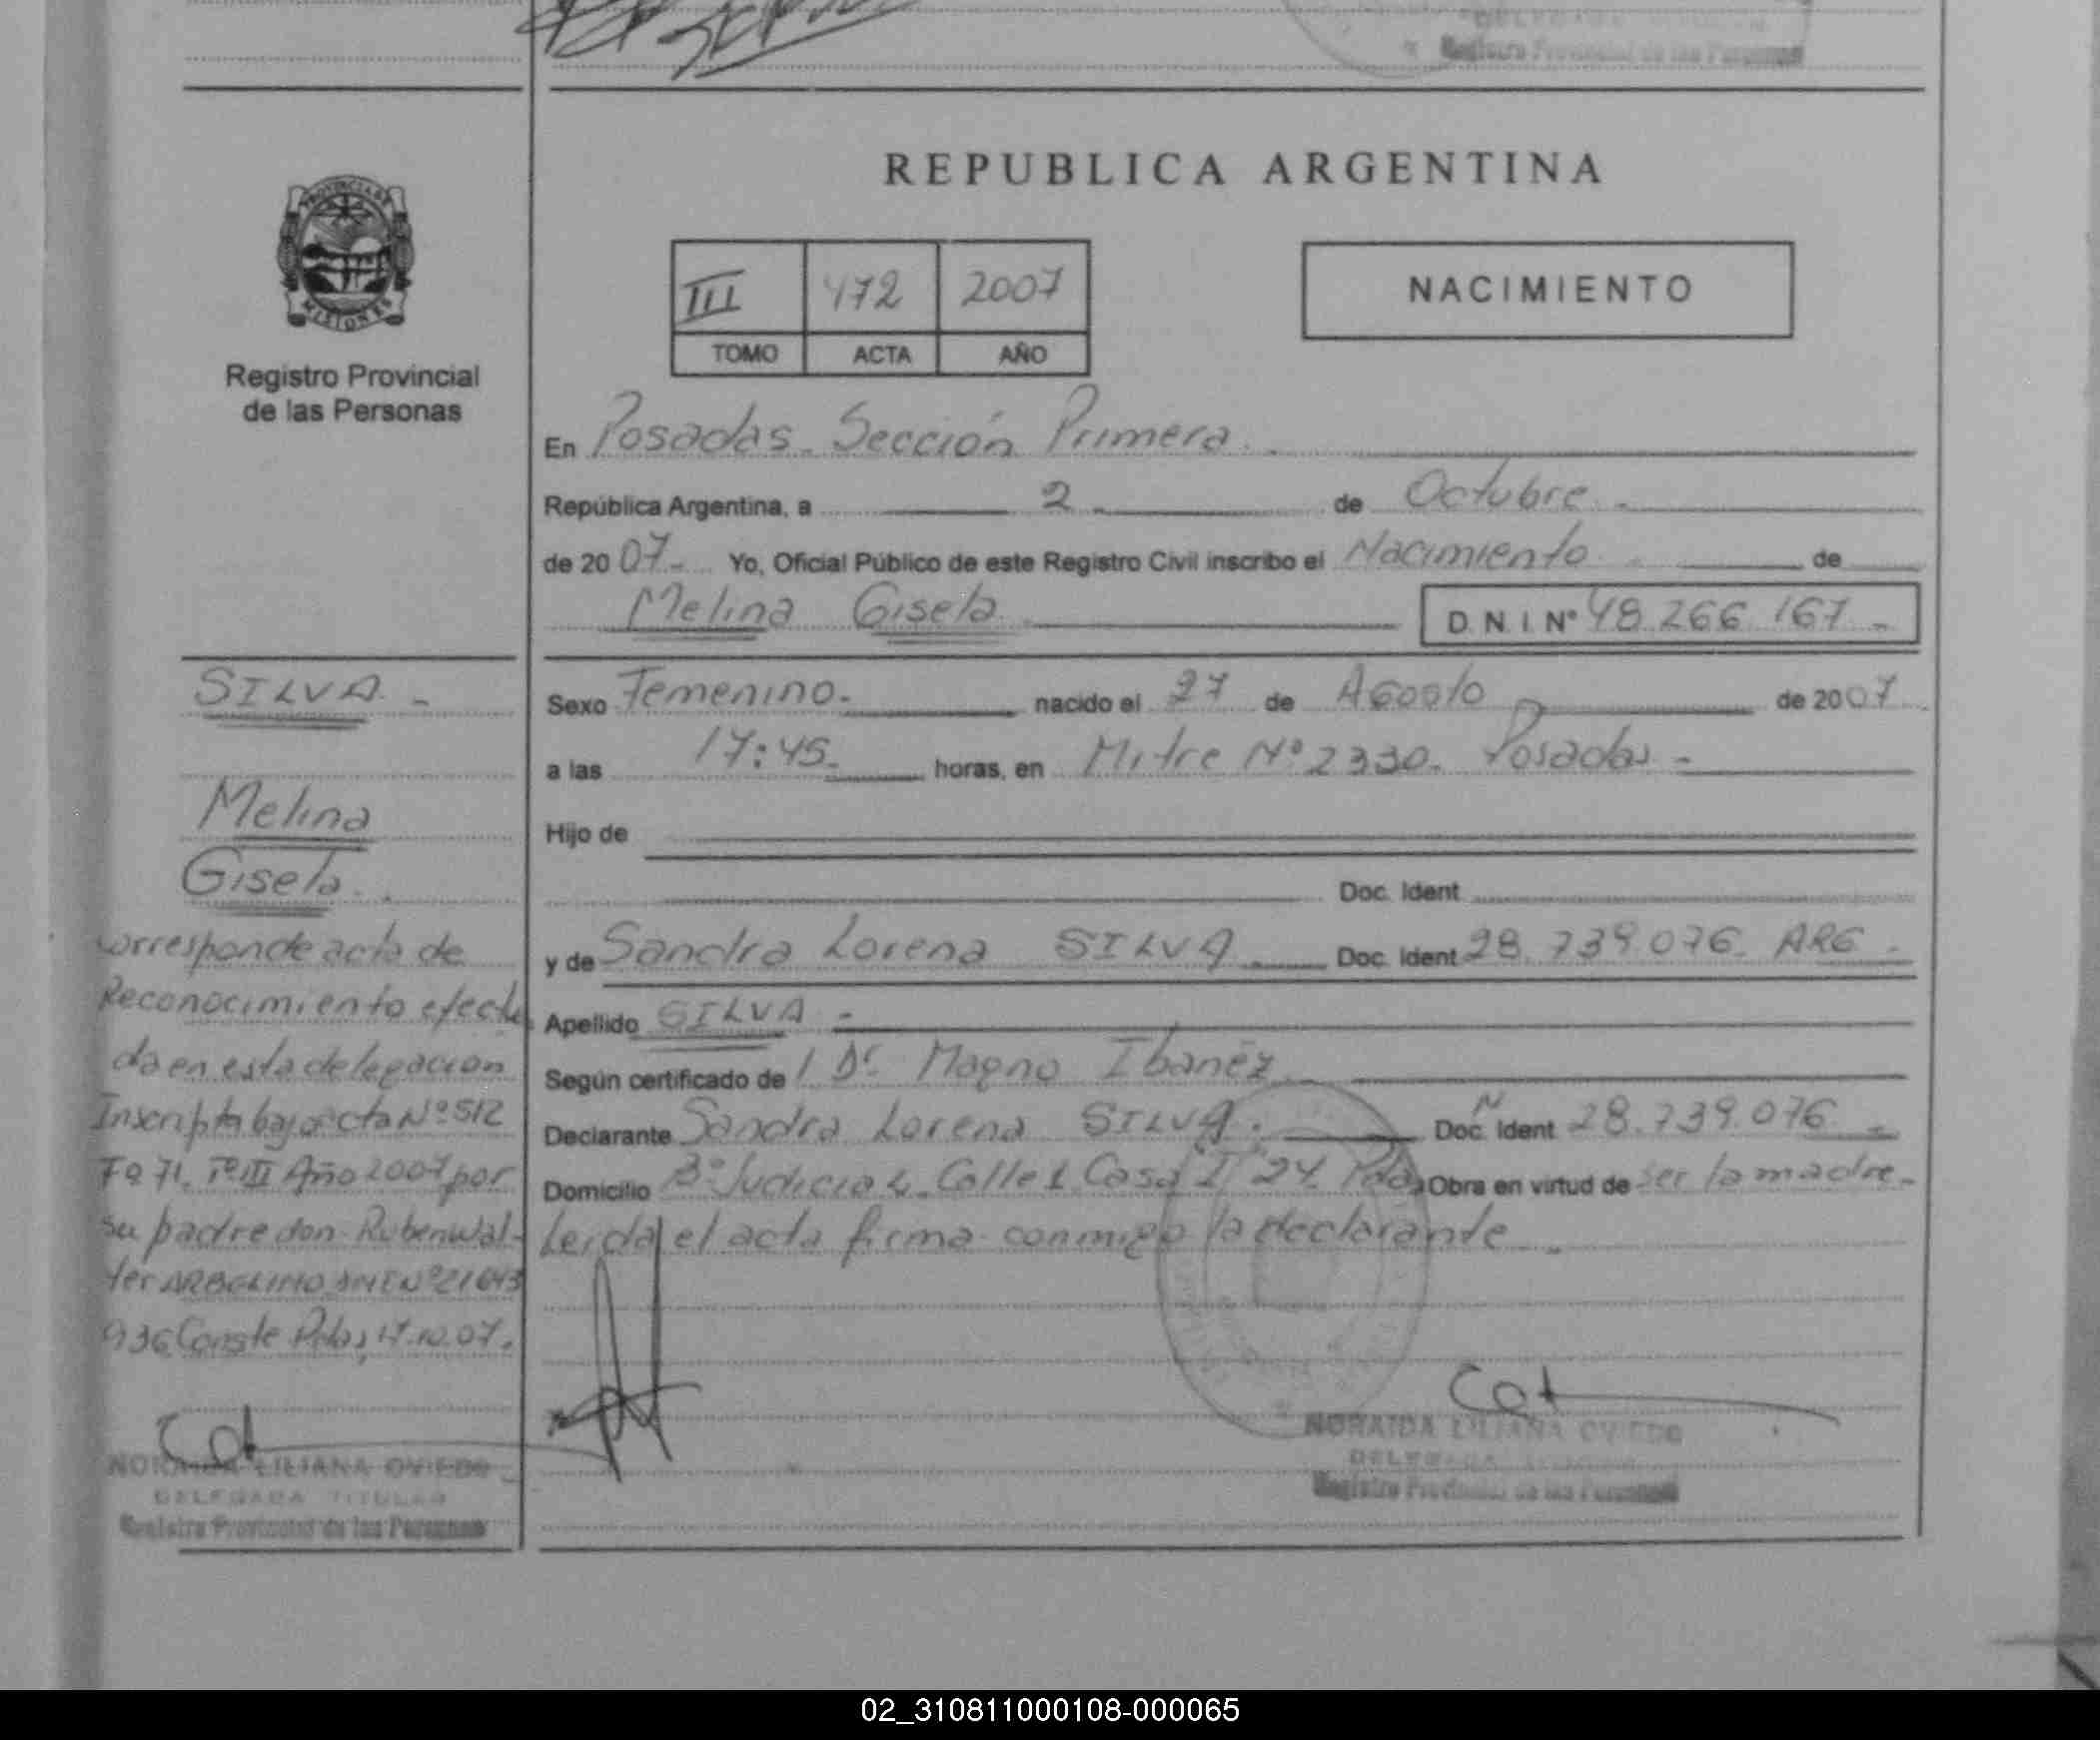 DELEGADA TITULAR
Registro Provincial de las Personas
PROVINCIA DE
MISIONES
Registro Provincial
de las Personas
REPUBLICA ARGENTINA
III 472 2007
TOMO ACTA AÑO
NACIMIENTO
En Posadas. Sección Primera.
República Argentina, a 2 de Octubre.
de 2007.- Yo, Oficial Público de este Registro Civil inscribo el Nacimiento de
Melina Gisela D.N.I Nº 48.266.167.-
Sexo Femenino. nacido el 27 de Agosto de 2007.
a las 17:45. horas, en Mitre Nº 2330. Posadas.-
Hijo de
Doc. Ident
y de Sandra Lorena SILVA. Doc. Ident 28.739.076. ARG.
Apellido SILVA.-
Según certificado de Dr. Magno Ibanéz
Declarante Sandra Lorena SILVA. Doc. Ident 28.739.076.-
Domicilio Bº Judicial. Calle 1 Casa 24. Pdas Obra en virtud de ser la madre.-
Leída el acta firma conmigo la declarante.
NORAIDA LILIANA OVIEDO
DELEGADA TITULAR
Registro Provincial de las Personas
SILVA.-
Melina
Gisela.
Corresponde acta de
Reconocimiento efectua
da en esta delegacion
Inscripta bajo acta Nº 512
Fº 71. Tº III Año 2007 por
su padre don Ruben Wal-
ter ARBOLINO DNI Nº 21.643
936 Conste Pdas, 17.10.07.
NORAIDA LILIANA OVIEDO
DELEGADA TITULAR
Registro Provincial de las Personas
02_310811000108-000065